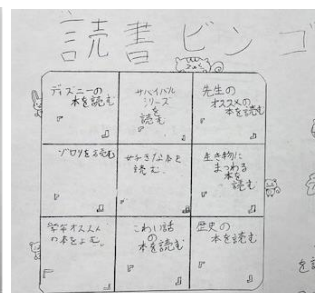 読書ビンゴ
ディズニーの
本を読む
サバイバル
シリーズ
を
読む
先生の
オススメの
本を読む
ゾロリを読む
好きな本を
読む
生き物に
まつわる
本を
読む
学年オススメ
の本をよむ。
こわい話
の
本を読む
歴史の
本を読む